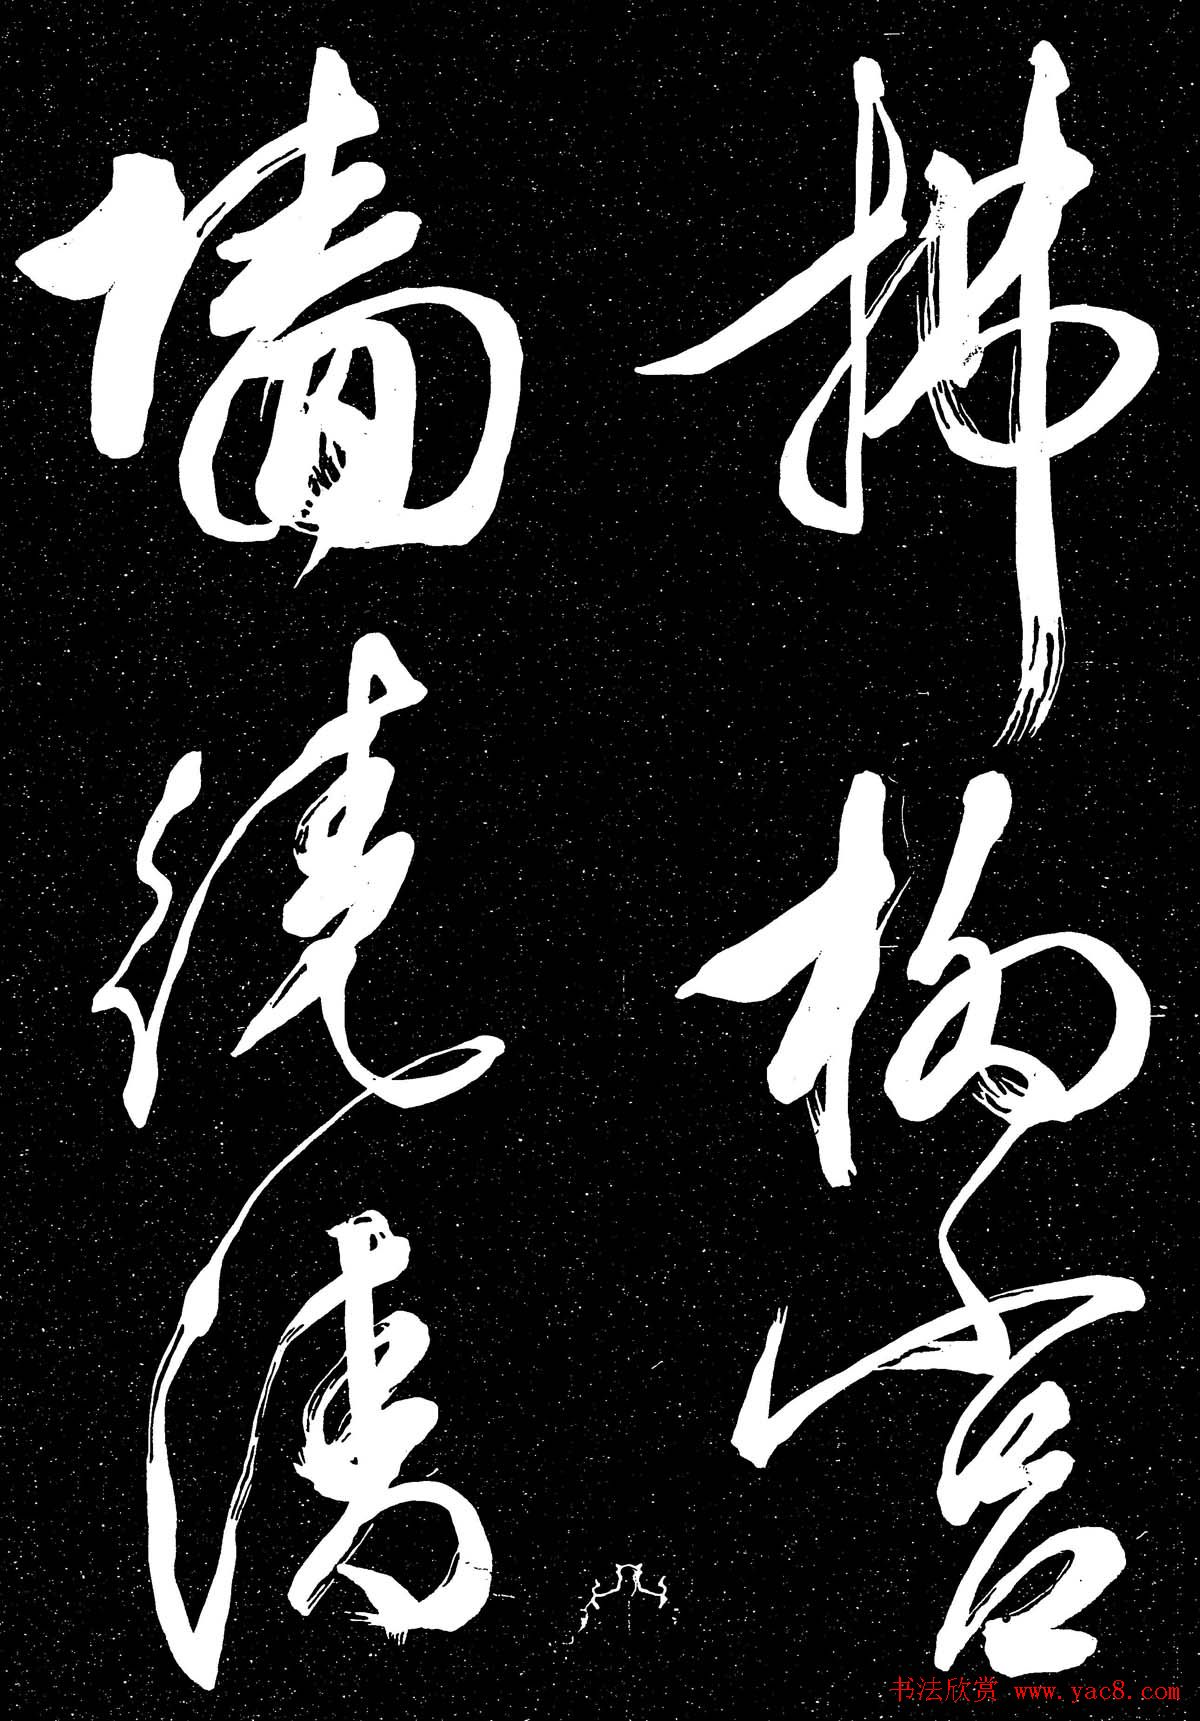 拂柳宫
墙绕清
书法欣赏 www.yac8.com